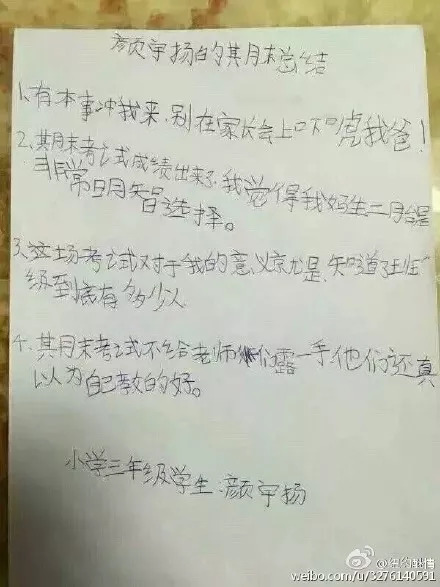 颜宇扬的期末总结
1、有本事冲我来,别在家长会上吓唬我爸!
2、期末考试成绩出来了,我觉得我妈生二胎是
非常明智选择。
3、这场考试对于我的意义就是,知道了班
级到底有多少人
4、期末考试不给老师们露一手,他们还真
以为自己教的好。
小学三年级学生:颜宇扬
weibo.com/u/3276140591